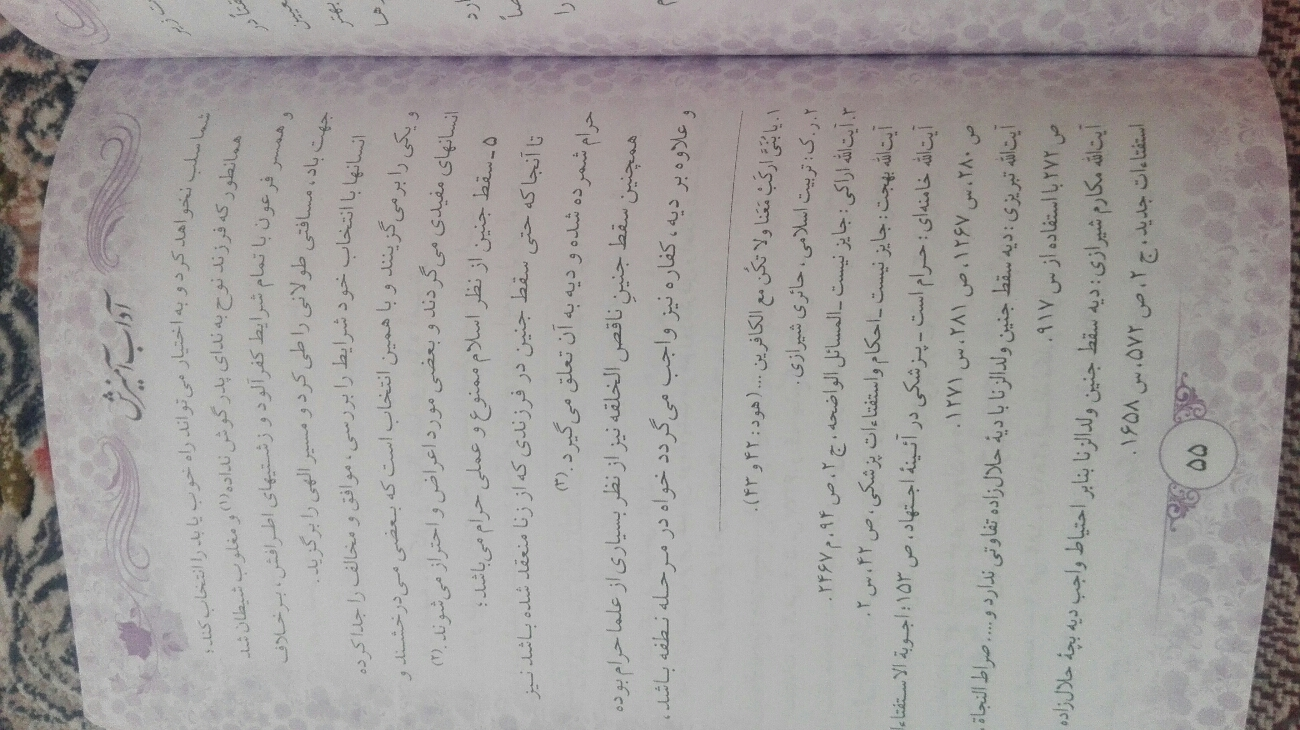 آداب آمیزش
شما سلب نخواهد کرد و به اختیار می‌تواند راه خوب یا بد را انتخاب کند؛
همانطور که فرزند نوح به ندای پدر گوش نداده (۱) و مغلوب شیطان شد
و همسر فرعون با تمام شرایط کفرآلود و زشتیهای اطرافش، برخلاف
جهت باد، مسافتی طولانی را طی کرد و مسیر الهی را برگزید.
انسانها با انتخاب خود شرایط را بررسی، موافق و مخالف را جدا کرده
و یکی را برمی‌گزینند و با همین انتخاب است که بعضی می‌درخشند و
انسانهای مفیدی می‌گردند و بعضی مورد اعراض و احتراز می‌شوند. (۲)
۵ ـ سقط جنین از نظر اسلام ممنوع و عملی حرام می‌باشد؛
تا آنجا که حتی سقط جنین در فرزندی که از زنا منعقد شده باشد نیز
حرام شمرده شده و دیه به آن تعلق می‌گیرد. (۳)
همچنین سقط جنینِ ناقص الخلقه نیز از نظر بسیاری از علما حرام بوده
و علاوه بر دیه، کفاره نیز واجب می‌گردد خواه در مرحله نطفه باشد،
۱. یا بُنَیَّ ارکَبْ مَعَنا ولا تکُن مع الکافرین ... (هود: ۴۲ و ۴۳).
۲. ر.ک: تربیت اسلامی، حائری شیرازی.
۳. آیت‌الله اراکی: جایز نیست ـ المسائل الواضحه، ج ۲، ص ۹۴، م ۲۴۶۷.
آیت‌الله بهجت: جایز نیست ـ احکام و استفتاءات پزشکی، ص ۴۲، س ۲.
آیت‌الله خامنه‌ای: حرام است ـ پزشکی در آئینهٔ اجتهاد، ص ۱۵۳؛ اجوبة الاستفتاءا
آیت‌الله تبریزی: دیه سقط جنین ولدالزنا با دیهٔ حلال‌زاده تفاوتی ندارد و.... صراط النجاة،
ص ۲۸۰، س ۱۲۶۷، ص ۲۸۱، س ۱۲۷۱.
ص ۲۷۲ با استفاده از س ۹۱۷.
آیت‌الله مکارم شیرازی: دیه سقط جنین ولدالزنا بنابر احتیاط واجب دیه بچهٔ حلال‌زاده
استفتاءات جدید، ج ۲، ص ۵۷۲، س ۱۶۵۸.
۵۵